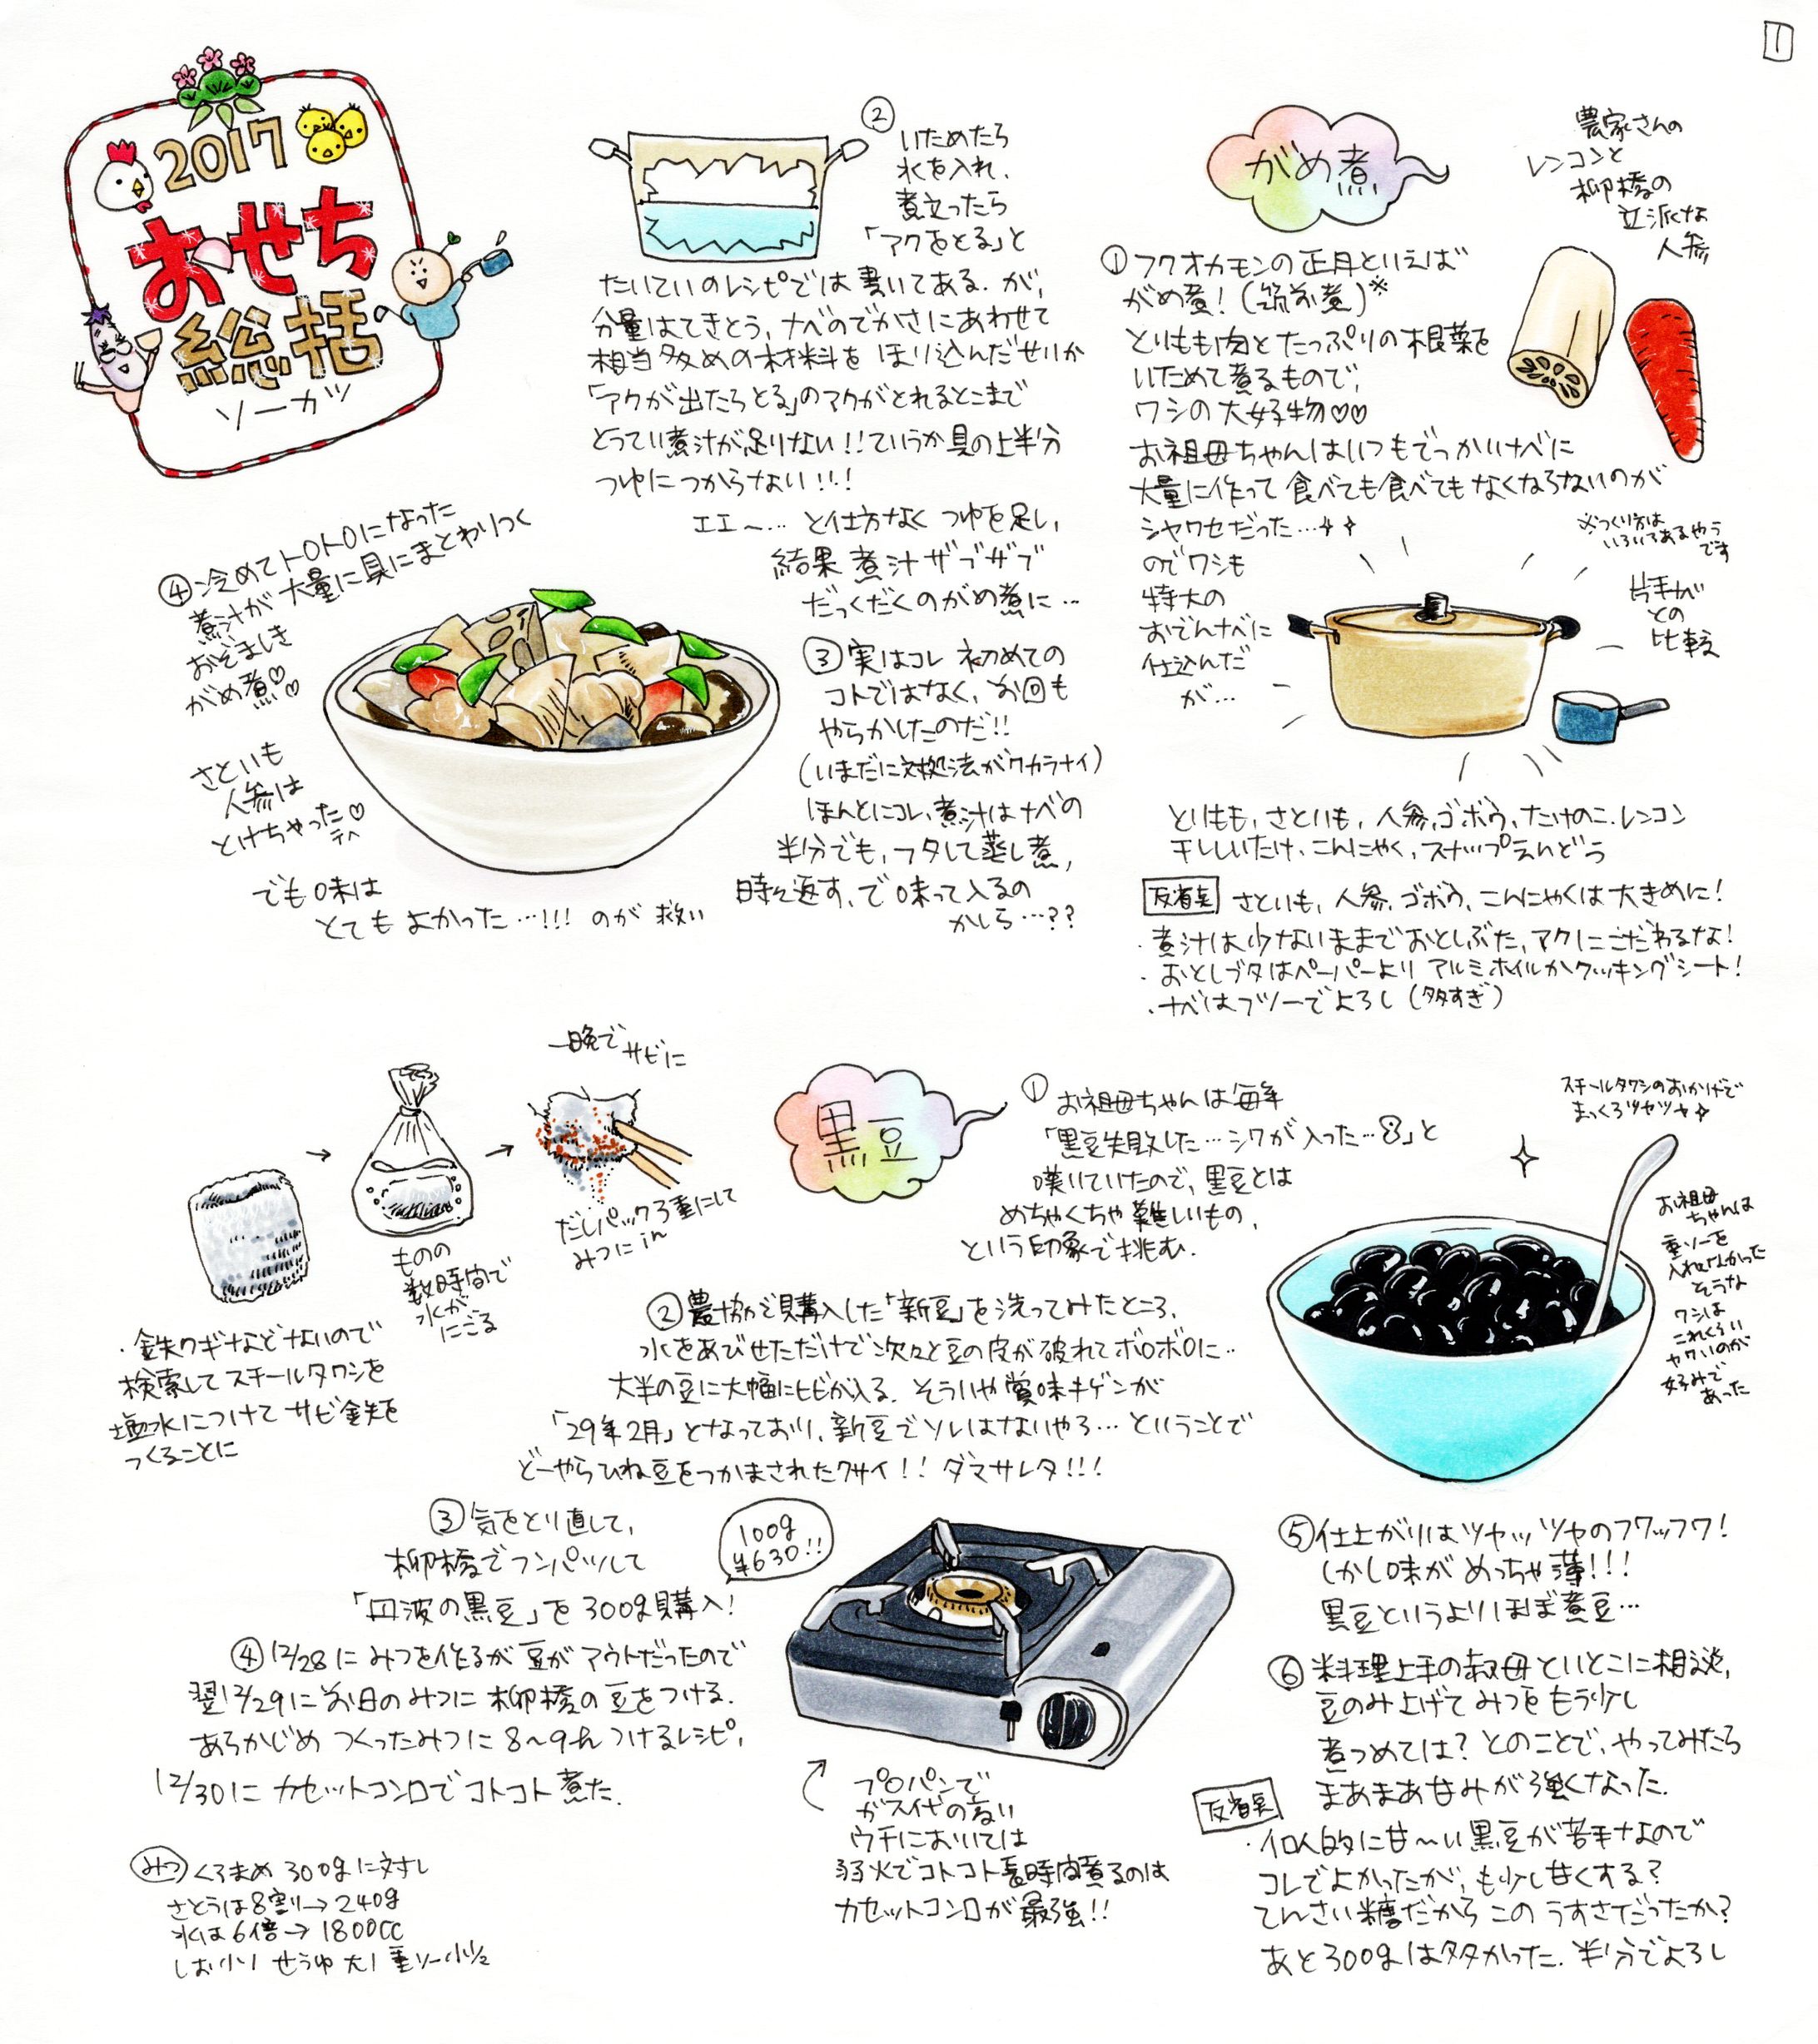 1
2017
おせち
総括
ソーカツ
がめ煮
農家さんの
レンコンと
柳橋の
立派な
人参
①フクオカモンの正月といえば
がめ煮!(筑前煮)※
とりもも肉とたっぷりの根菜を
いためて煮るもので、
ワシの大好物♡♡
お祖母ちゃんはいつもでっかいナベに
大量に作って食べても食べてもなくならないのが
シャワセだった…
のでワシも
特大の
おでんナベに
仕込んだ
が…
※つくり方は
いろいろあるやうです
片手ナベ
との
比較
とりもも、さといも、人参、ゴボウ、たけのこ、レンコン
干ししいたけ、こんにゃく、スナップえんどう
反省点 さといも、人参、ゴボウ、こんにゃくは大きめに!
・煮汁は少ないままでおとしぶた、アクにこだわるな!
・おとしブタはペーパーよりアルミホイルかクッキングシート!
・ナベはフツーでよろし(多すぎ)
②
いためたら
水を入れ、
煮立ったら
「アクをとる」と
たいていのレシピでは書いてある。が、
分量はてきとう、ナベのでかさにあわせて
相当多めの材料をほり込んだせいか
「アクが出たらとる」のアクがとれるとこまで
とうてい煮汁が足りない!!ていうか具の上半分
つゆにつからない!!!
エエ〜…と仕方なくつゆを足し、
結果煮汁ザブザブ
だっくだくのがめ煮に…
③実はコレ初めての
コトではなく、前回も
やらかしたのだ!!
(いまだに対処法がワカラナイ)
ほんとにコレ、煮汁はナベの
半分でも、フタして蒸し煮、
時々返す、で味って入るの
かしら…??
④冷めてトロトロになった
煮汁が大量に具にまとわりつく
おぞましき
がめ煮♡♡
さといも
人参は
とけちゃった♡
テヘ
でも味は
とてもよかった…!!!のが救い
黒豆
①お祖母ちゃんは毎年
「黒豆失敗した…シワが入った…」と
嘆いていたので、黒豆とは
めちゃくちゃ難しいもの、
という印象で挑む。
②農協で購入した「新豆」を洗ってみたところ、
水をあびせただけで次々と豆の皮が破れてボロボロに…
大半の豆に大幅にヒビが入る。そういや賞味キゲンが
「29年2月」となっており、新豆でソレはないやろ…ということで
どーやらひね豆をつかまされたクサイ!!ダマサレタ!!!
一晩でサビに
だしパック3重にして
みつにin
ものの
数時間で
水が
にごる
・鉄クギなどないので
検索してスチールタワシを
塩水につけてサビ鉄を
つくることに
スチールタワシのおかげで
まっくろツヤツヤ
お祖母
ちゃんは
重ソーを
入れなかった
そうな
ワシは
これくらい
ヤワいのが
好みで
あった
③気をとり直して、
柳橋でフンパツして
「丹波の黒豆」を300g購入!
100g
¥630!!
④12/28にみつを作るが豆がアウトだったので
翌12/29に前日のみつに柳橋の豆をつける。
あらかじめつくったみつに8〜9hつけるレシピ。
12/30にカセットコンロでコトコト煮た。
みつ くろまめ300gに対し
さとうは8割→240g
水は6倍→1800cc
しお小1 せうゆ大1 重ソー小1/2
プロパンで
ガス代の高い
ウチにおいては
弱火でコトコト長時間煮るのは
カセットコンロが最強!!
⑤仕上がりはツヤッツヤのフワッフワ!
しかし味がめっちゃ薄!!!
黒豆というよりほぼ煮豆…
⑥料理上手の叔母といとこに相談、
豆のみ上げてみつをもう少し
煮つめては?とのことで、やってみたら
まあまあ甘みが強くなった。
反省点
・個人的に甘〜い黒豆が苦手なので
コレでよかったが、も少し甘くする?
てんさい糖だからこのうすさだったか?
あと300gは多かった。半分でよろし